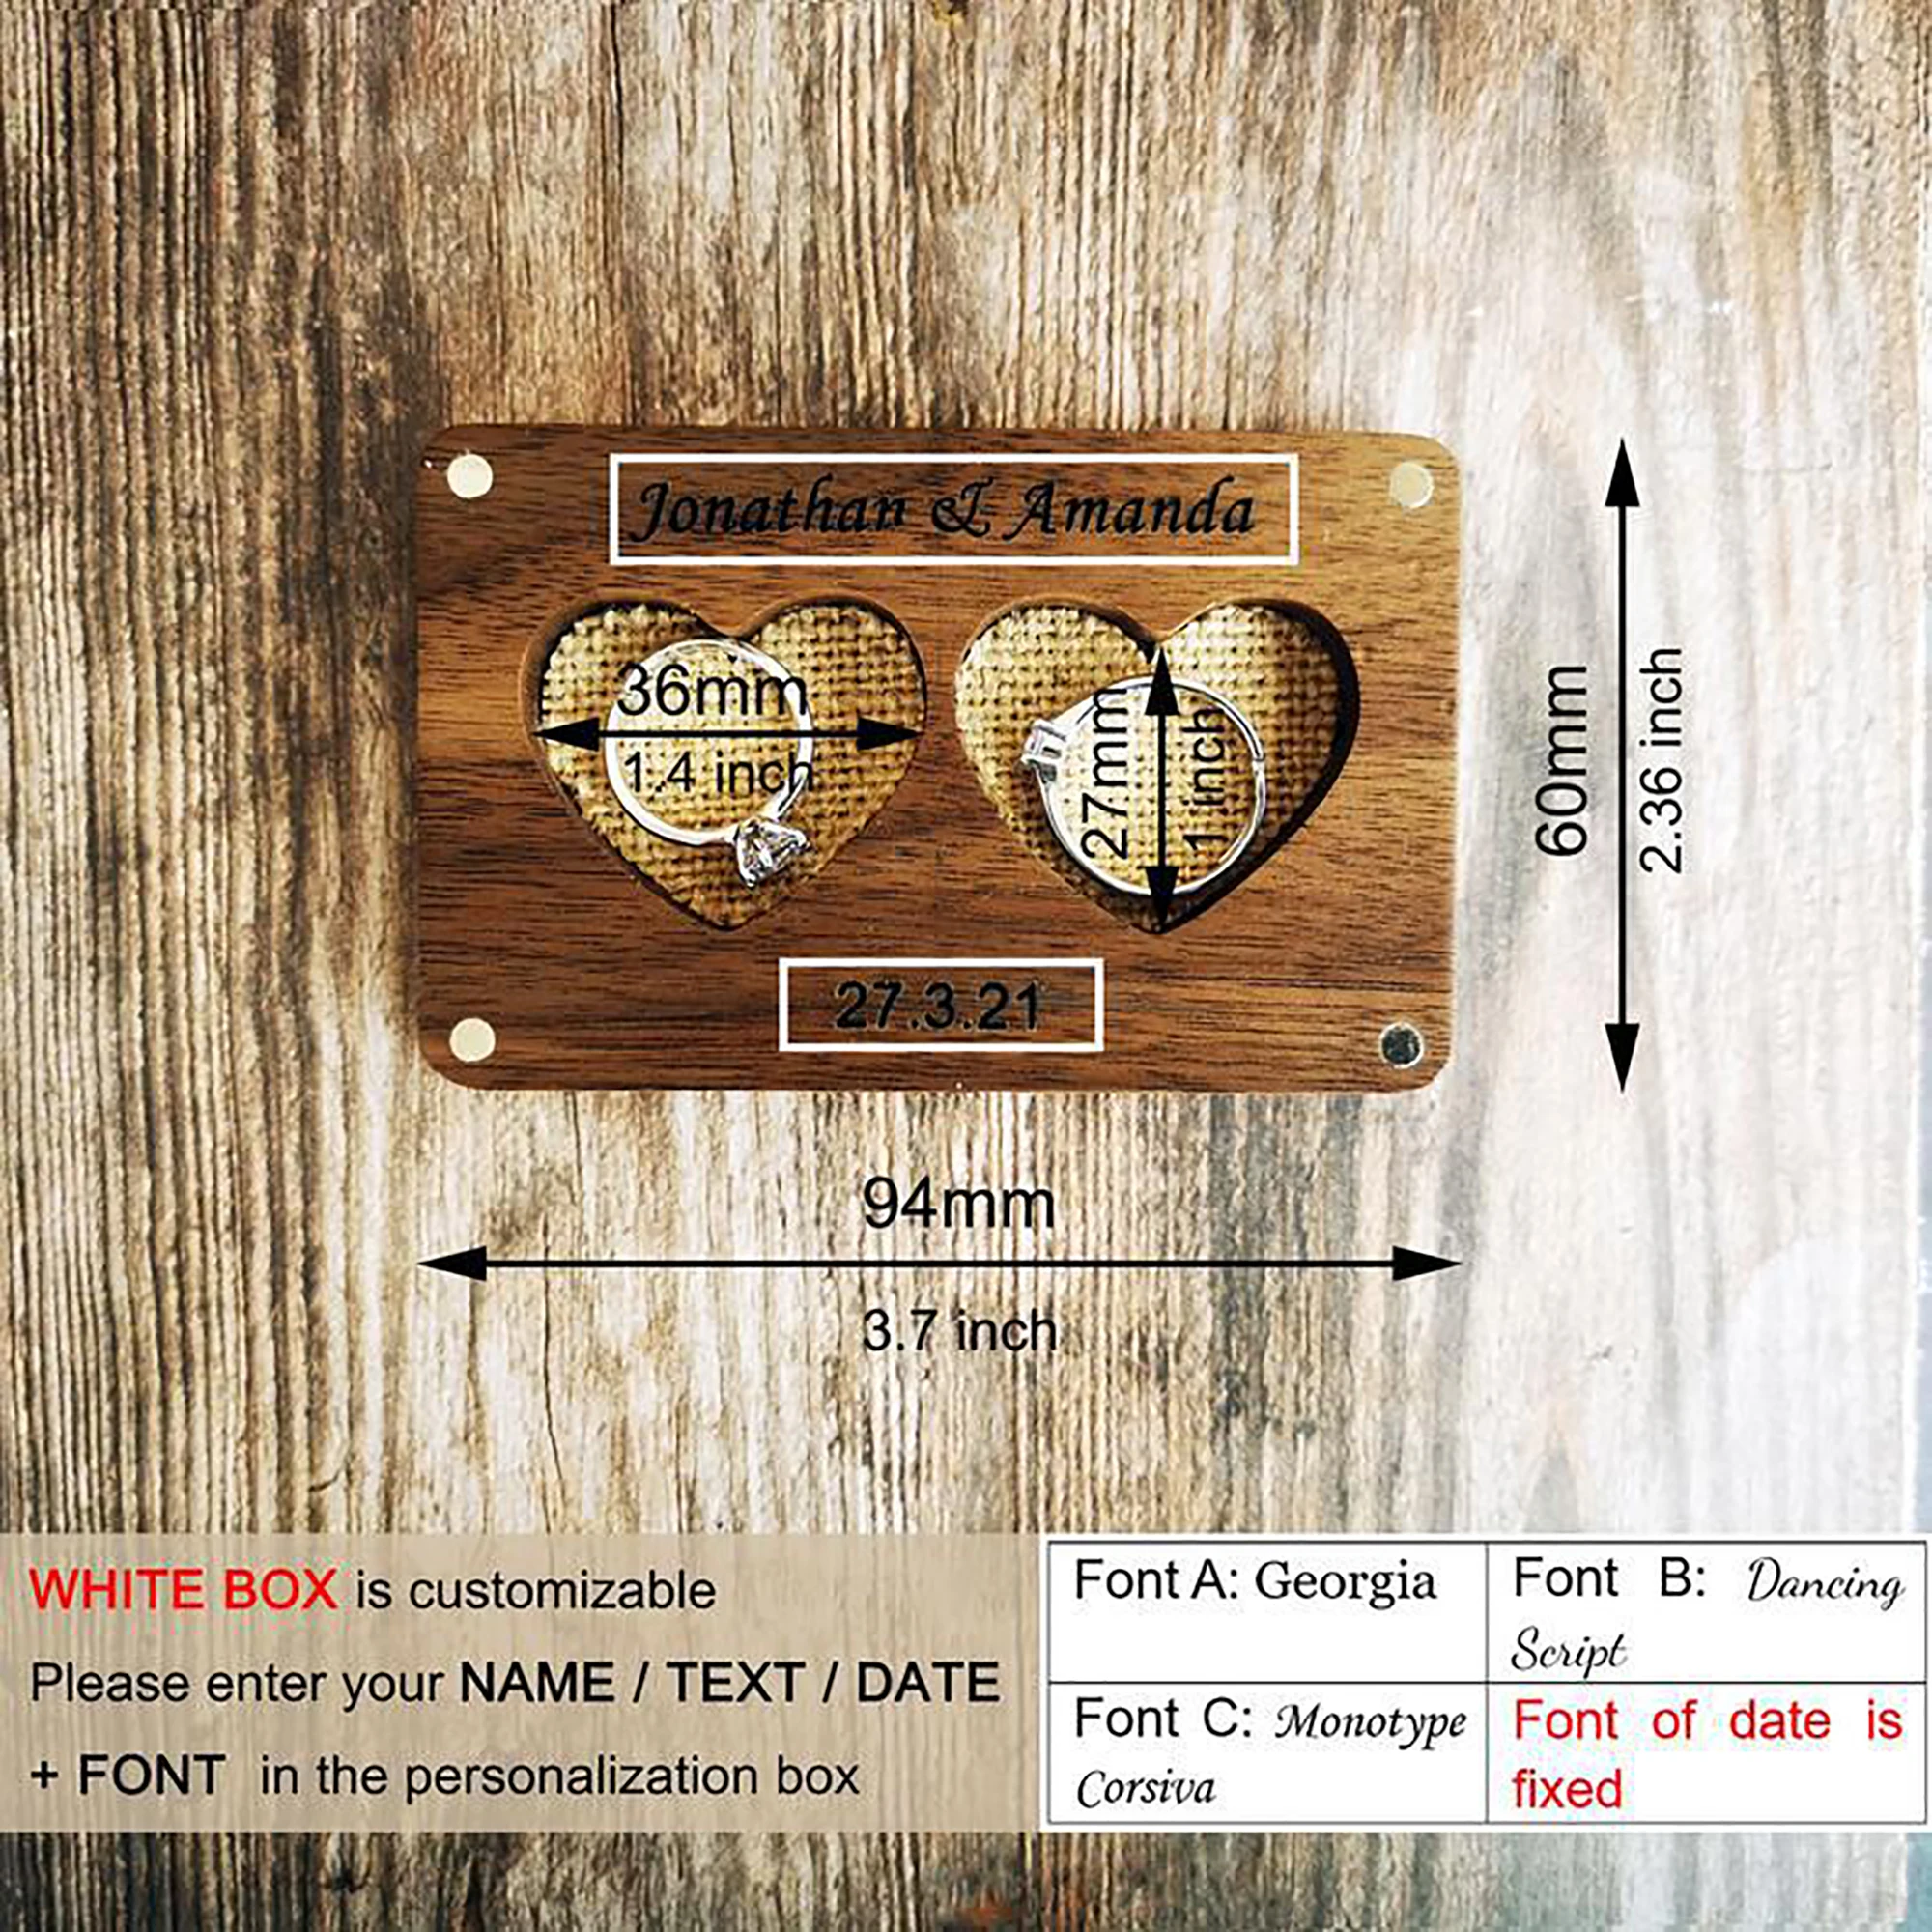 Jonathan & Amanda
36mm
1.4 inch
27mm
1 inch
27.3.21
60mm
2.36 inch
94mm
3.7 inch
WHITE BOX is customizable
Please enter your NAME / TEXT / DATE
+ FONT in the personalization box
Font A: Georgia
Font B: Dancing
Script
Font C: Monotype
Corsiva
Font of date is
fixed